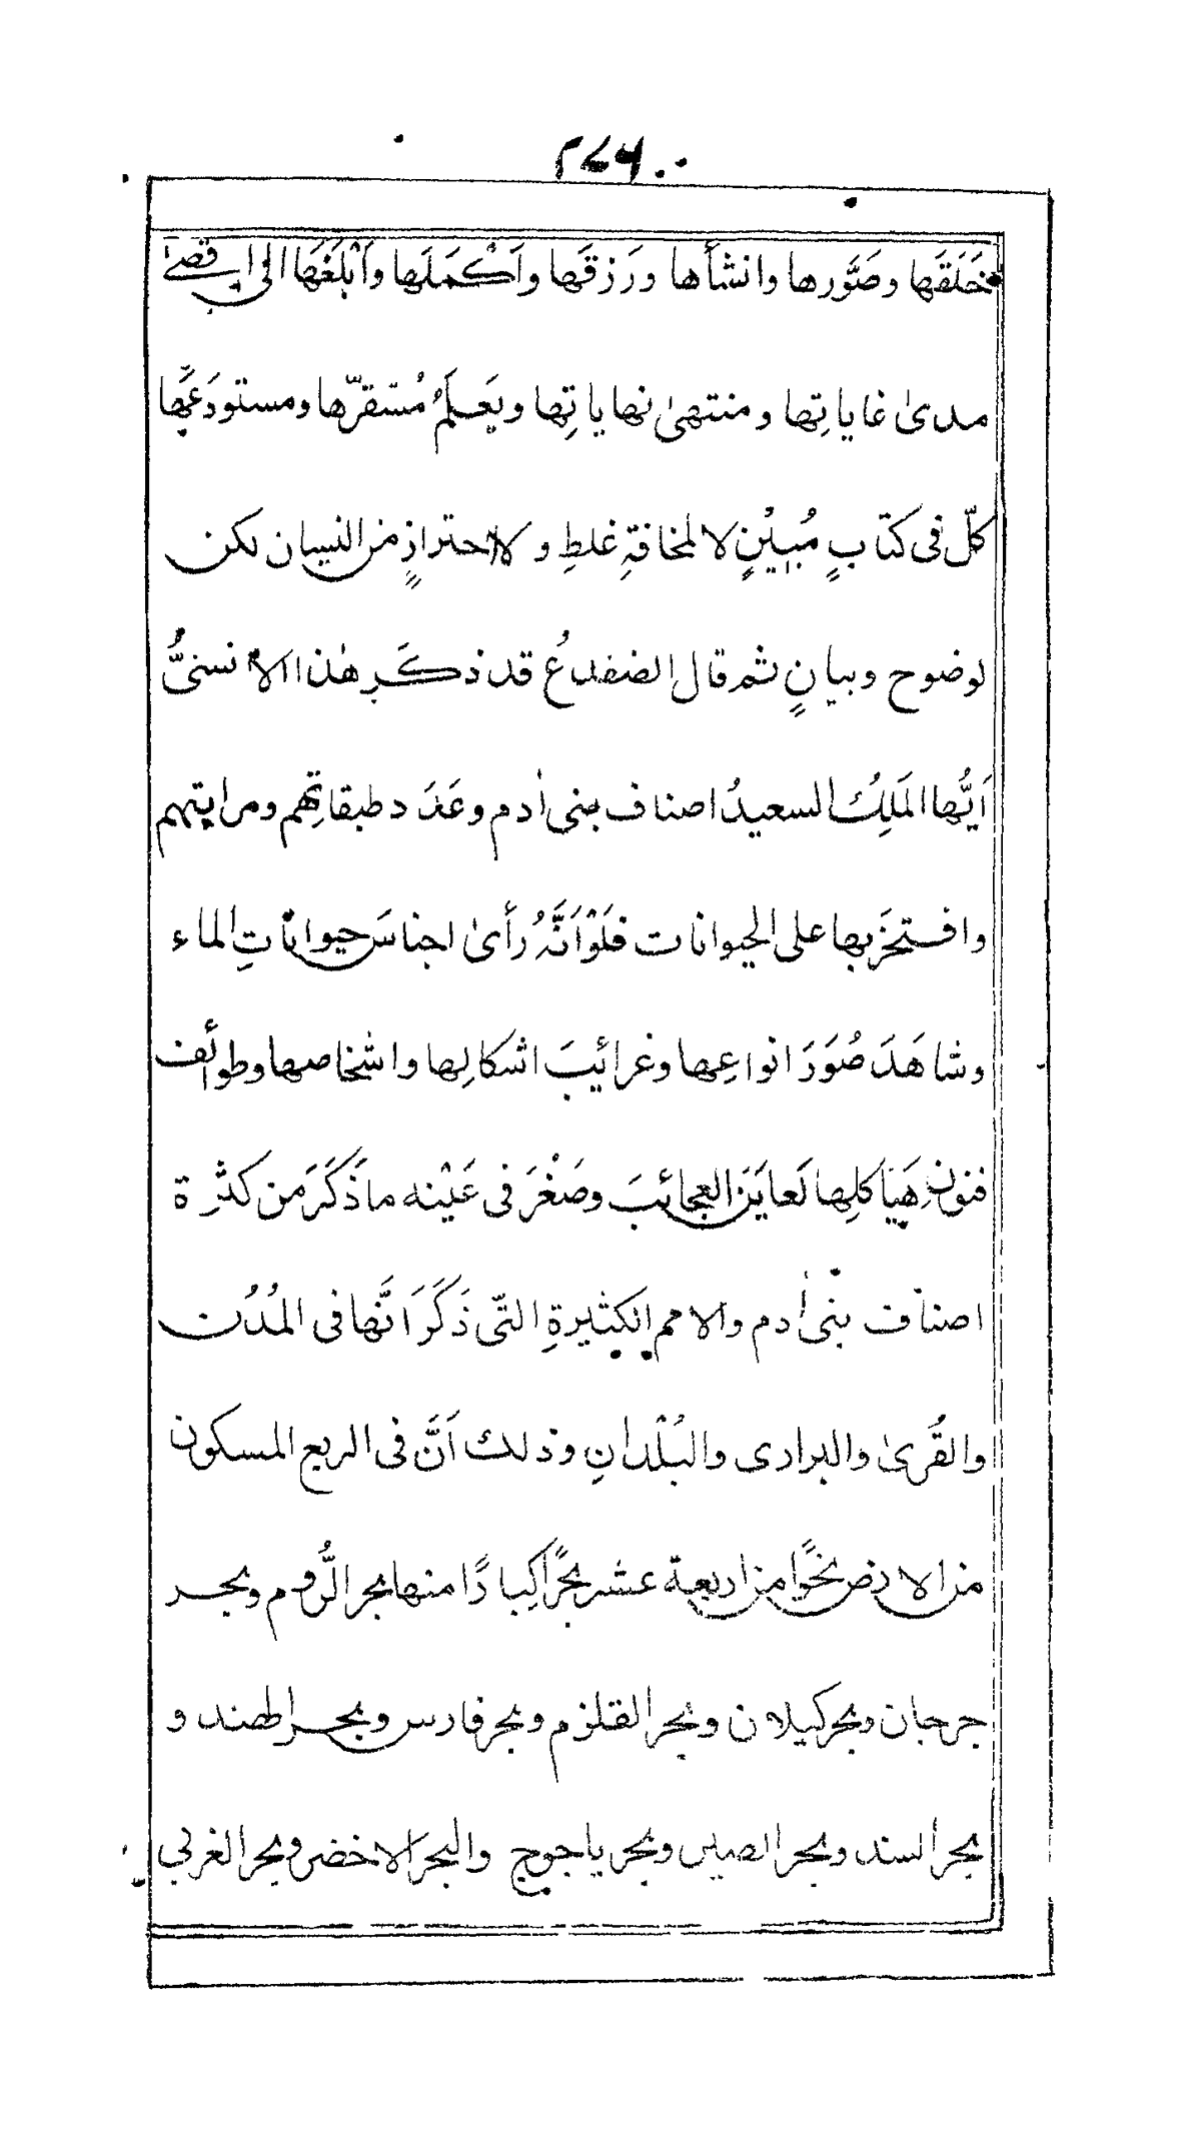 ٢٧٦
خَلَقَها وصَوَّرها وانشأها ورَزقَها واَكْمَلَها واَبْلَغَها الى اقصىٰ
مدىٰ غاياتِها ومنتهىٰ نهاياتِها ويَعلَمُ مُسْتقرّها ومستودَعَها
كلّ فى كتابٍ مُبِيْنٍ لا لمخافةِ غلطِ ولا احترازٍ من النسيان لكن
لوضوح وبيانٍ ثم قال الضفدعُ قد ذكَر هٰذا الانسىُّ
اَيُّها المَلِكُ السعيدُ اصناف بنى اٰدم وعَدَد طبقاتِهم ومراتبهم
وافتخَر بها على الحيوانات فلَوْ اَنَّهُ رأىٰ اجناسَ حيواناتِ الماء
وشاهَدَ صُوَرَ انواعِها وغرائيبَ اشكالِها واشخاصها وطوائف
فنونِ هَياكلِها لَعايَنَ العجائبَ وصَغْرَ فى عَيْنه ما ذَكَرَ من كثرة
اصناف بنى اٰدم والامم الكثيرةِ التّى ذَكَرَ اَنَّها فى المُدُن
والقُرىٰ والبرارى والبُلْدانِ وذلك اَنَّ فى الربع المسكون
من الارض نحْوًا من اربعة عشر بحرًا كِبارًا منها بحر الرُّوم وبحر
جرجان وبحر كيلان وبحر القلزم وبحر فارس وبحر الهند و
بحر السند وبحر الصين وبحر ياجوج والبحر الاخضر وبحر الغربى